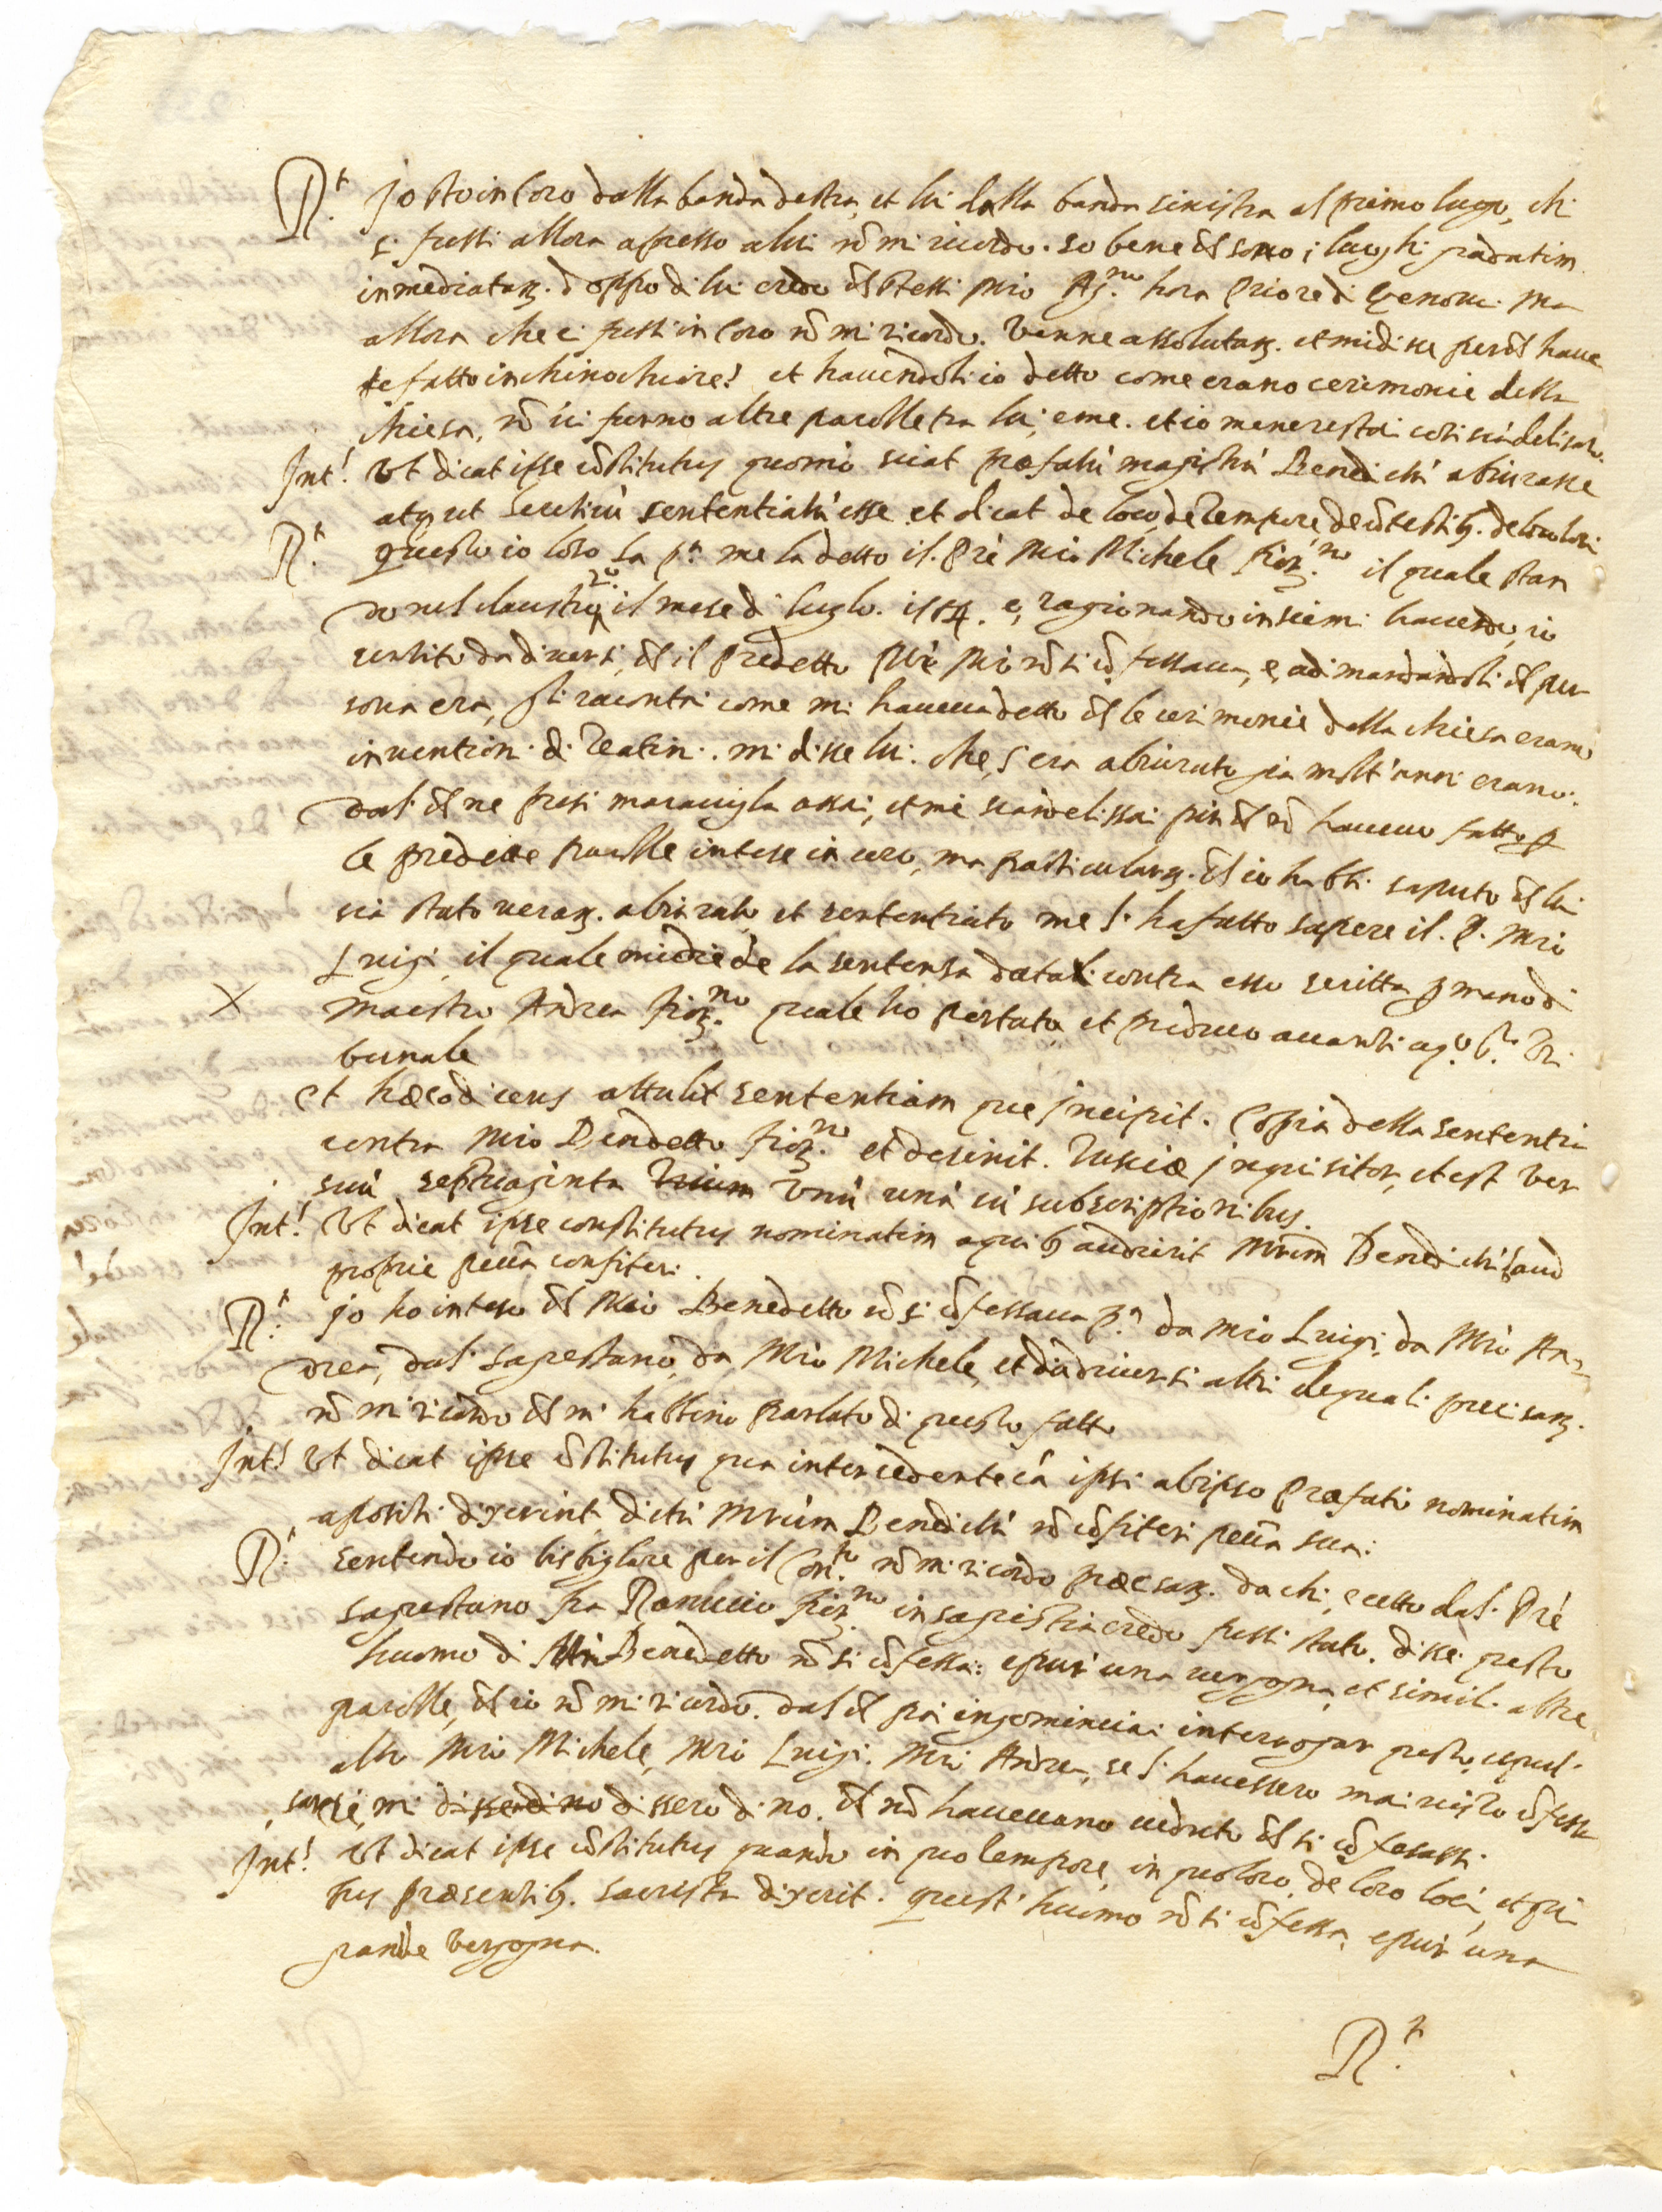 R.t Jo sto in Coro dalla banda destra, et lui dalla banda sinistra al primo luogo, chi
si fussi allora apresso a lui nō mi ricordo. so bene ch̄ sono i luoghi gradatim
inmediatam. doppo di lui credo ch̄ stessi Mro Ag.no hora Priore di Genova. Ma
allora che ci fussi in Coro nō mi ricordo. Venne assolutam. et mi disse perch̄ have
te fatto inchinochiare? et havendoli io detto come erano cerimonie della
chiesa, nō ui furno altre parolle tra lui, e me. et io me ne restai cosi scādelisato.
Int. Vt dicat ipse cōstitutus quomō sciat præfatū magistrū Benedictū abiurasse
atq ut hereticū sententiatū esse et dicat de loco, de tempore de cōtestib. de loco loci
R.t questo io lo so la p.a me la detto il Prē Mro Michele fior.no il quale stan
do nel claustro 2.o il mese di luglo. 1584. e, ragionando insiemi havendo, io
sentito da diversi, ch̄ il predetto Prē Mrō nō si cōfessava, e, adimandandoli ch̄ per
sona era, gli racontai come mi haveva detto ch̄ le cerimonie della chiesa erano
invention. di Teatin. mi disse lui. che, s'era abiurato gia molt'anni erano.
dal ch̄ ne presi maraviglia assai, et mi scandelissai piu ch̄ nō havevo fatto p
le predette parolle intese in coro, ma particularm. ch̄ io habbi saputo ch̄ lui
sia stato veram. abiurato, et sententiato me l' ha fatto sapere il. P. Mro
Luigi, il quale mi diede la sentenza datali contra esso scritta p mano di
X Maestro Andrea fior.no quale ho portata et produco avanti a q.o S.to Tri
bunale
et hæc dicens attulit sententiam que incipit. Copia della sententia
contra Mro Benedetto fior.no et desinit. Tusciæ inquisitor, et est ver
suū septuaginta Unū unā cū subscriptionibus.
Int. Vt dicat ipse constitutus nominatim a quib audierit Mrum Benedictū haud
proprie peccā confiteri.
R.t Jo ho inteso ch̄ Mro Benedetto nō si cōfessava p.a da Mro Luigi, da Mrō An=
drea, dal sagrestano, da Mrō Michele, et da diversi altri de quali precisam.
nō mi ricordo ch̄ mi habbino parlato di questo fatto
Int. Vt dicat ipse cōstitutus qua intercedente cā ipsi ab ipso præfato nominatim
apositi dixerint dictū Mrūm Benedictū nō cōfiteri peccā sua.
R.t sentendo io bisbiglare per il Con.to nō mi ricordo precsam. da chi, ecetto dal. Prē
sagrestano fra Ranuccio fior.no in sagrestia credo fussi stato. disse questo
huomo di Mrō Benedetto nō si cōfessa: e pur' una vergogna, et simil. altre
parolle, ch̄ io nō mi ricordo. dal ch̄ poi ingominciai interrogar questo, e quel.
altro Mro Michele, Mro Luigi. Mrō Andrea, se l' havessero mai visto cōfessa
sarsi, mi dissero di no. ch̄ nō havevano veduto ch̄ si cōfesassi
Int. Vt dicat ipse cōstitutus quando in quo tempore, in quo loco, de loco loci, et qui
bus præsentib. sacrista dixerit. quest' huomo nō si cōfessa, e pur' una
grande vergogna.
R.t